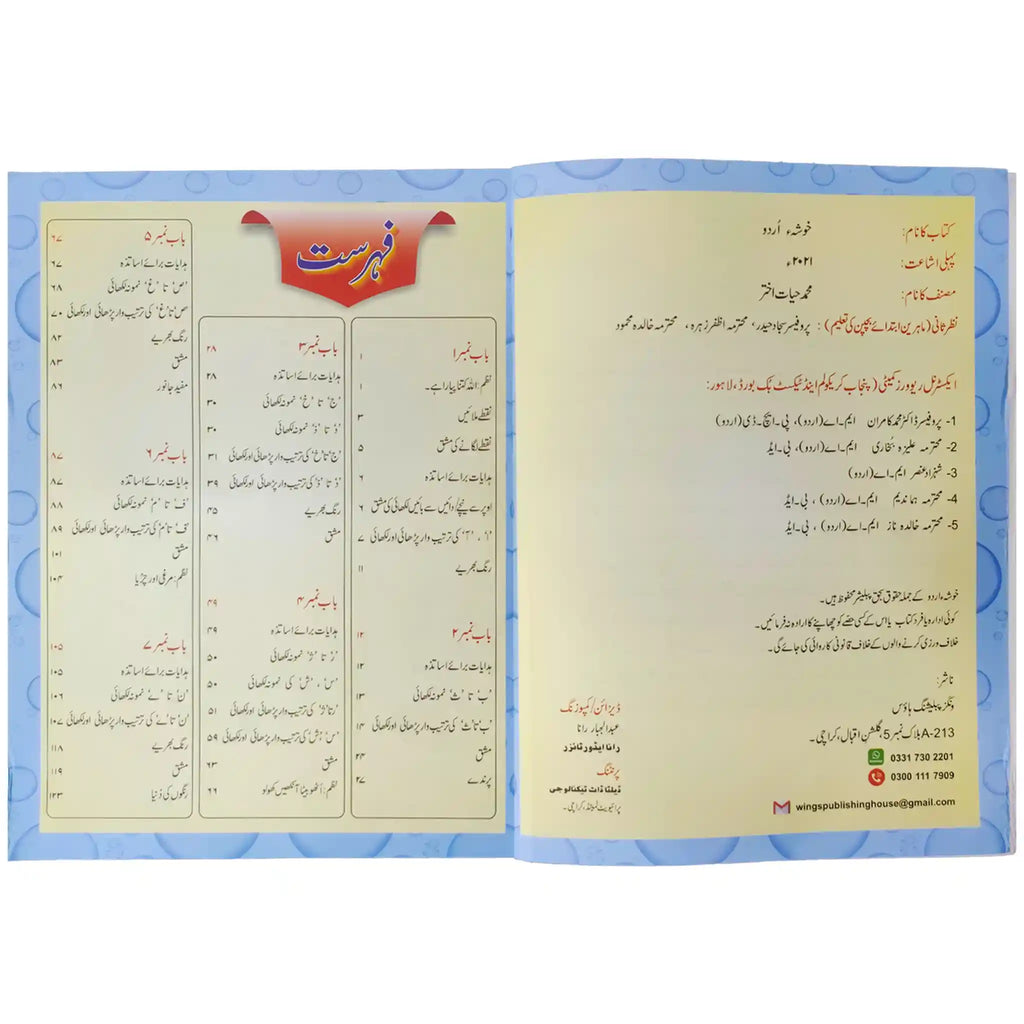 کتاب کا نام: خوشہء اُردو
پہلی اشاعت: ۲۰۲۱ء
مصنف کا نام: محمد حیات اختر
نظر ثانی (ماہرین ابتدائے بچپن کی تعلیم): پروفیسر سجاد حیدر، محترمہ اظفر زہرہ، محترمہ خالدہ محمود
ایکسٹرنل ریوورز کمیٹی (پنجاب کریکولم اینڈ ٹیکسٹ بک بورڈ، لاہور:
1- پروفیسر ڈاکٹر محمد کامران ایم۔اے (اردو)، پی۔ایچ۔ڈی (اردو)
2- محترمہ علیزہ بخاری ایم۔اے (اردو)، بی۔ایڈ
3- شہزاد عنصر ایم۔اے (اردو)
4- محترمہ ہما ندیم ایم۔اے (اردو)، بی۔ایڈ
5- محترمہ خالدہ ناز ایم۔اے (اردو)، بی۔ایڈ
خوشہء اردو کے جملہ حقوق بحق پبلیشر محفوظ ہیں۔
کوئی ادارہ یا فرد کتاب یا اس کے کسی حصّے کو چھاپنے کا ارادہ نہ فرمائیں۔
خلاف ورزی کرنے والوں کے خلاف قانونی کاروائی کی جائے گی۔
ناشر:
ونگز پبلیشنگ ہاؤس
A-213 بلاک نمبر 5، گلشن اقبال، کراچی۔
0331 730 2201
0300 111 7909
wingspublishinghouse@gmail.com
ڈیزائن/کمپوزنگ
عبدالجبار رانا
رانا ایڈورٹائزر
پرنٹنگ
ڈیلٹا ڈاٹ ٹیکنالوجی
پرائیویٹ لمیٹڈ، کراچی۔
فہرست
باب نمبر ۱ ۱
نظم: اللہ کتنا پیارا ہے۔ ۱
نقطے ملائیں ۳
نقطے لگانے کی مشق ۵
ہدایات برائے اساتذہ ۶
اوپر سے نیچے/دائیں سے بائیں لکھائی کی مشق ۶
'ا'، 'آ' کی ترتیب وار پڑھائی اور لکھائی ۷
رنگ بھریے ۱۱
باب نمبر ۲ ۱۲
ہدایات برائے اساتذہ ۱۲
'ب' تا 'ث' نمونہ لکھائی ۱۳
'ب' تا 'ث' کی ترتیب وار پڑھائی اور لکھائی ۱۴
مشق ۲۴
پرندے ۲۷
باب نمبر ۳ ۲۸
ہدایات برائے اساتذہ ۲۸
'ج' تا 'خ' نمونہ لکھائی ۳۰
'د' تا 'ذ' نمونہ لکھائی ۳۰
'ج' تا 'خ' کی ترتیب وار پڑھائی اور لکھائی ۳۱
'د' تا 'ذ' کی ترتیب وار پڑھائی اور لکھائی ۳۹
رنگ بھریے ۴۵
مشق ۴۶
باب نمبر ۴ ۴۹
ہدایات برائے اساتذہ ۴۹
'ر' تا 'ژ' نمونہ لکھائی ۵۰
'س'، 'ش' کی نمونہ لکھائی ۵۰
'ر' تا 'ژ' کی ترتیب وار پڑھائی اور لکھائی ۵۱
'س'، 'ش' کی ترتیب وار پڑھائی اور لکھائی ۵۹
مشق ۶۳
نظم: اُٹھو بیٹا آنکھیں کھولو ۶۶
باب نمبر ۵ ۶۷
ہدایات برائے اساتذہ ۶۷
'ص' تا 'غ' نمونہ لکھائی ۶۸
'ص' تا 'غ' کی ترتیب وار پڑھائی اور لکھائی ۷۰
رنگ بھریے ۸۲
مشق ۸۳
مفید جانور ۸۶
باب نمبر ۶ ۸۷
ہدایات برائے اساتذہ ۸۷
'ف' تا 'م' نمونہ لکھائی ۸۸
'ف' تا 'م' کی ترتیب وار پڑھائی اور لکھائی ۸۹
مشق ۱۰۱
نظم: مرغی اور چڑیا ۱۰۴
باب نمبر ۷ ۱۰۵
ہدایات برائے اساتذہ ۱۰۵
'ن' تا 'ے' نمونہ لکھائی ۱۰۶
'ن' تا 'ے' کی ترتیب وار پڑھائی اور لکھائی ۱۰۷
رنگ بھریے ۱۱۸
مشق ۱۱۹
رنگوں کی دُنیا ۱۲۳